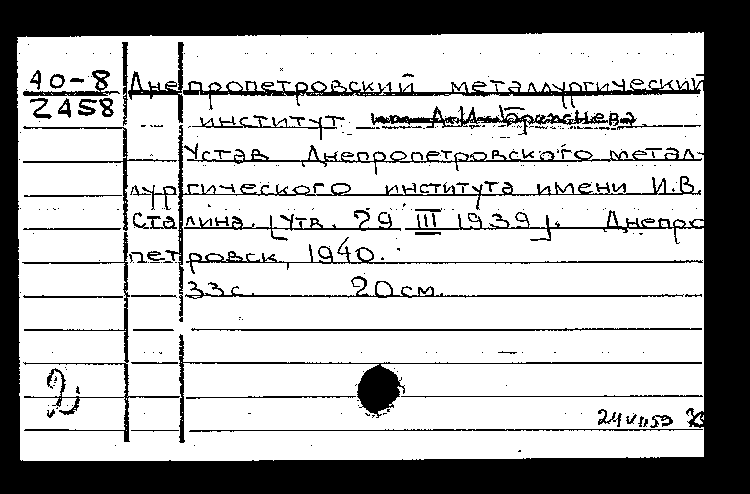 40-8 Днепропетровский металлургический
2458
институт
Устав Днепропетровского метал-
лургического института имени И.В.
Сталина. [Утв. 29 III 1939]. Днепро
петровск, 1940.
33с. 20см.
2
24 VII 59